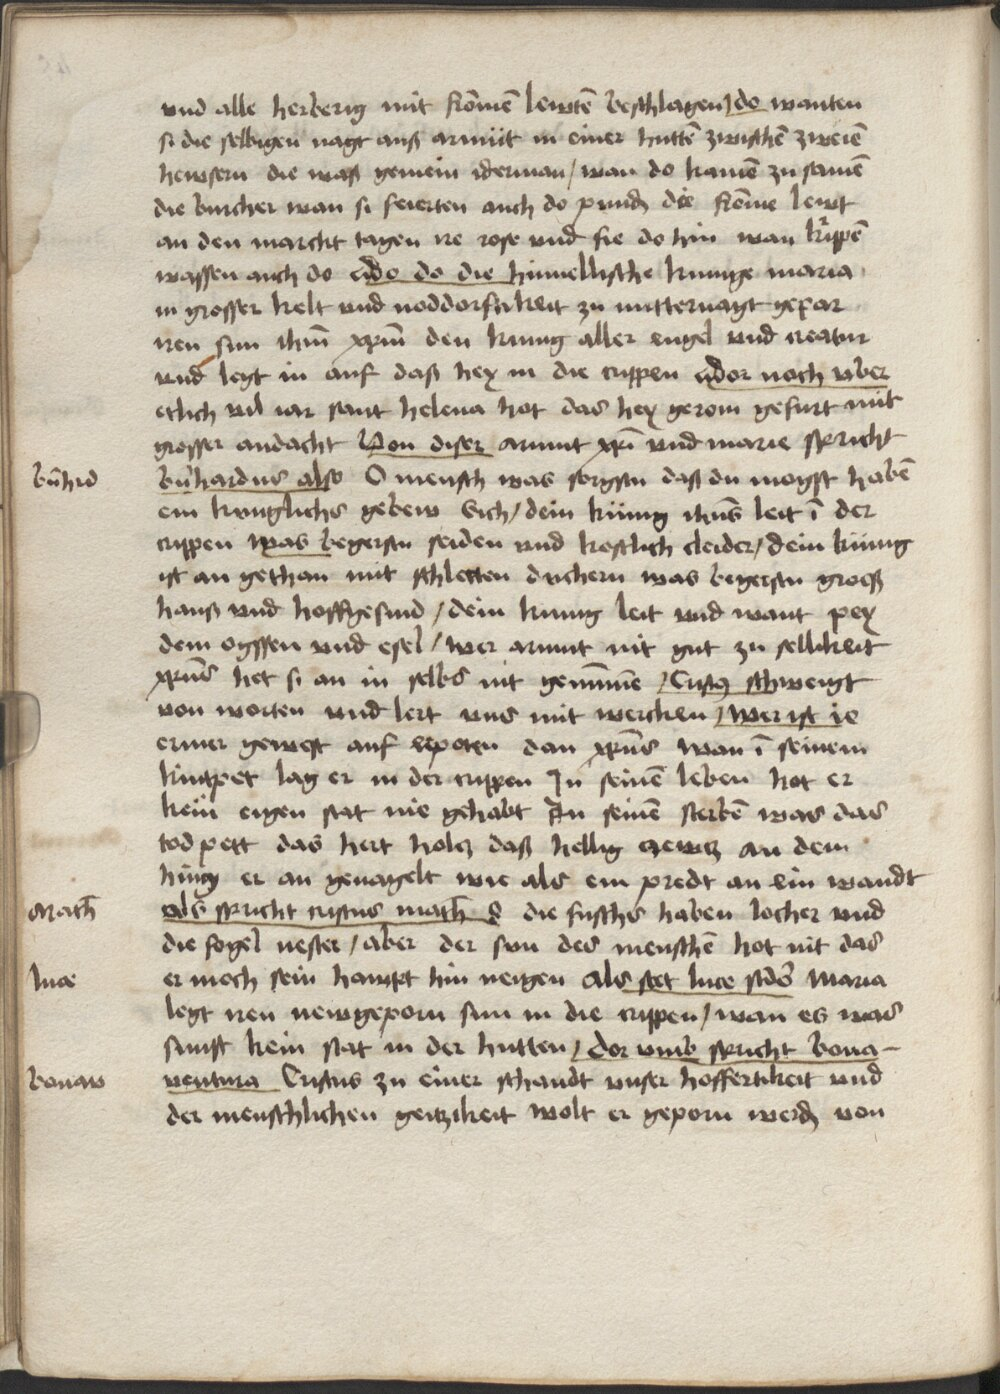 vnd alle herberig mit fromē lewtē beschlagen / do wanten
si die selbigen nagt auß armüt in einer huttē zwischē zweiē
hewsern die waß gemein iderman / wan do kamē zu samē
die burcher wan si feierten auch do pundē die fromē lewt
an den marckt tagen ire rose vnd fie do hin wan krippē
wassen auch do also do die himellische kunige maria
in grosser kelt vnd noddorfikeit zu mitternagt gepar
iren sun ihm̄ xpm̄ den kunig aller engel vnd creatur
vnd legt in auf daß hey in die crippen
etlich vil iar sant helena hot das hey gerom gefurt mit
grosser andacht Von diser armut xpi vnd marie spricht
bn̄hrd
bn̄hardus also O mensch was sorgstu daß du mogst habē
ein kunglichs gebew Sich / dein künig ihūs leit ī der
crippen was begerstu seiden vnd kostlich cleider / dein künig
ist an gethan mit schlecten duchern was begerstu groeß
hauß vnd hoffgesind / dein kunig leit vnd want pey
dem ogssen vnd esel / wer armut nit gut zu sellikeit
xpūs het si an in selbs nit genūmē / Cristus schweigt
von worten vnd lert vns mit wercken / Wer ist ie
ermer gewest auf erden dan xpūs wan ī seinem
kintpet lag er in der crippen In seinē leben hot er
kein eigen stat nie gehabt In seinē sterbē was das
tod pett das hert holcz daß hellig crewtz an dem
hing er an genagelt wie als ein predt an ein wandt
Math̄
als spricht cristus math̄ 8 die fuschs haben locher vnd
die fogel nester / aber der sun des menschē hot nit das
luce
er moch sein haupt hin neigen Als stet luce Maria
legt iren newgeporn sun in die crippen / wan es was
sunst kein stat in der hutten / dor vmb spricht bona-
bonav
ventura Cristus zu einer schandt vnser hoffertikeit vnd
der menschlichen geitzikeit wolt er geporn werdē von